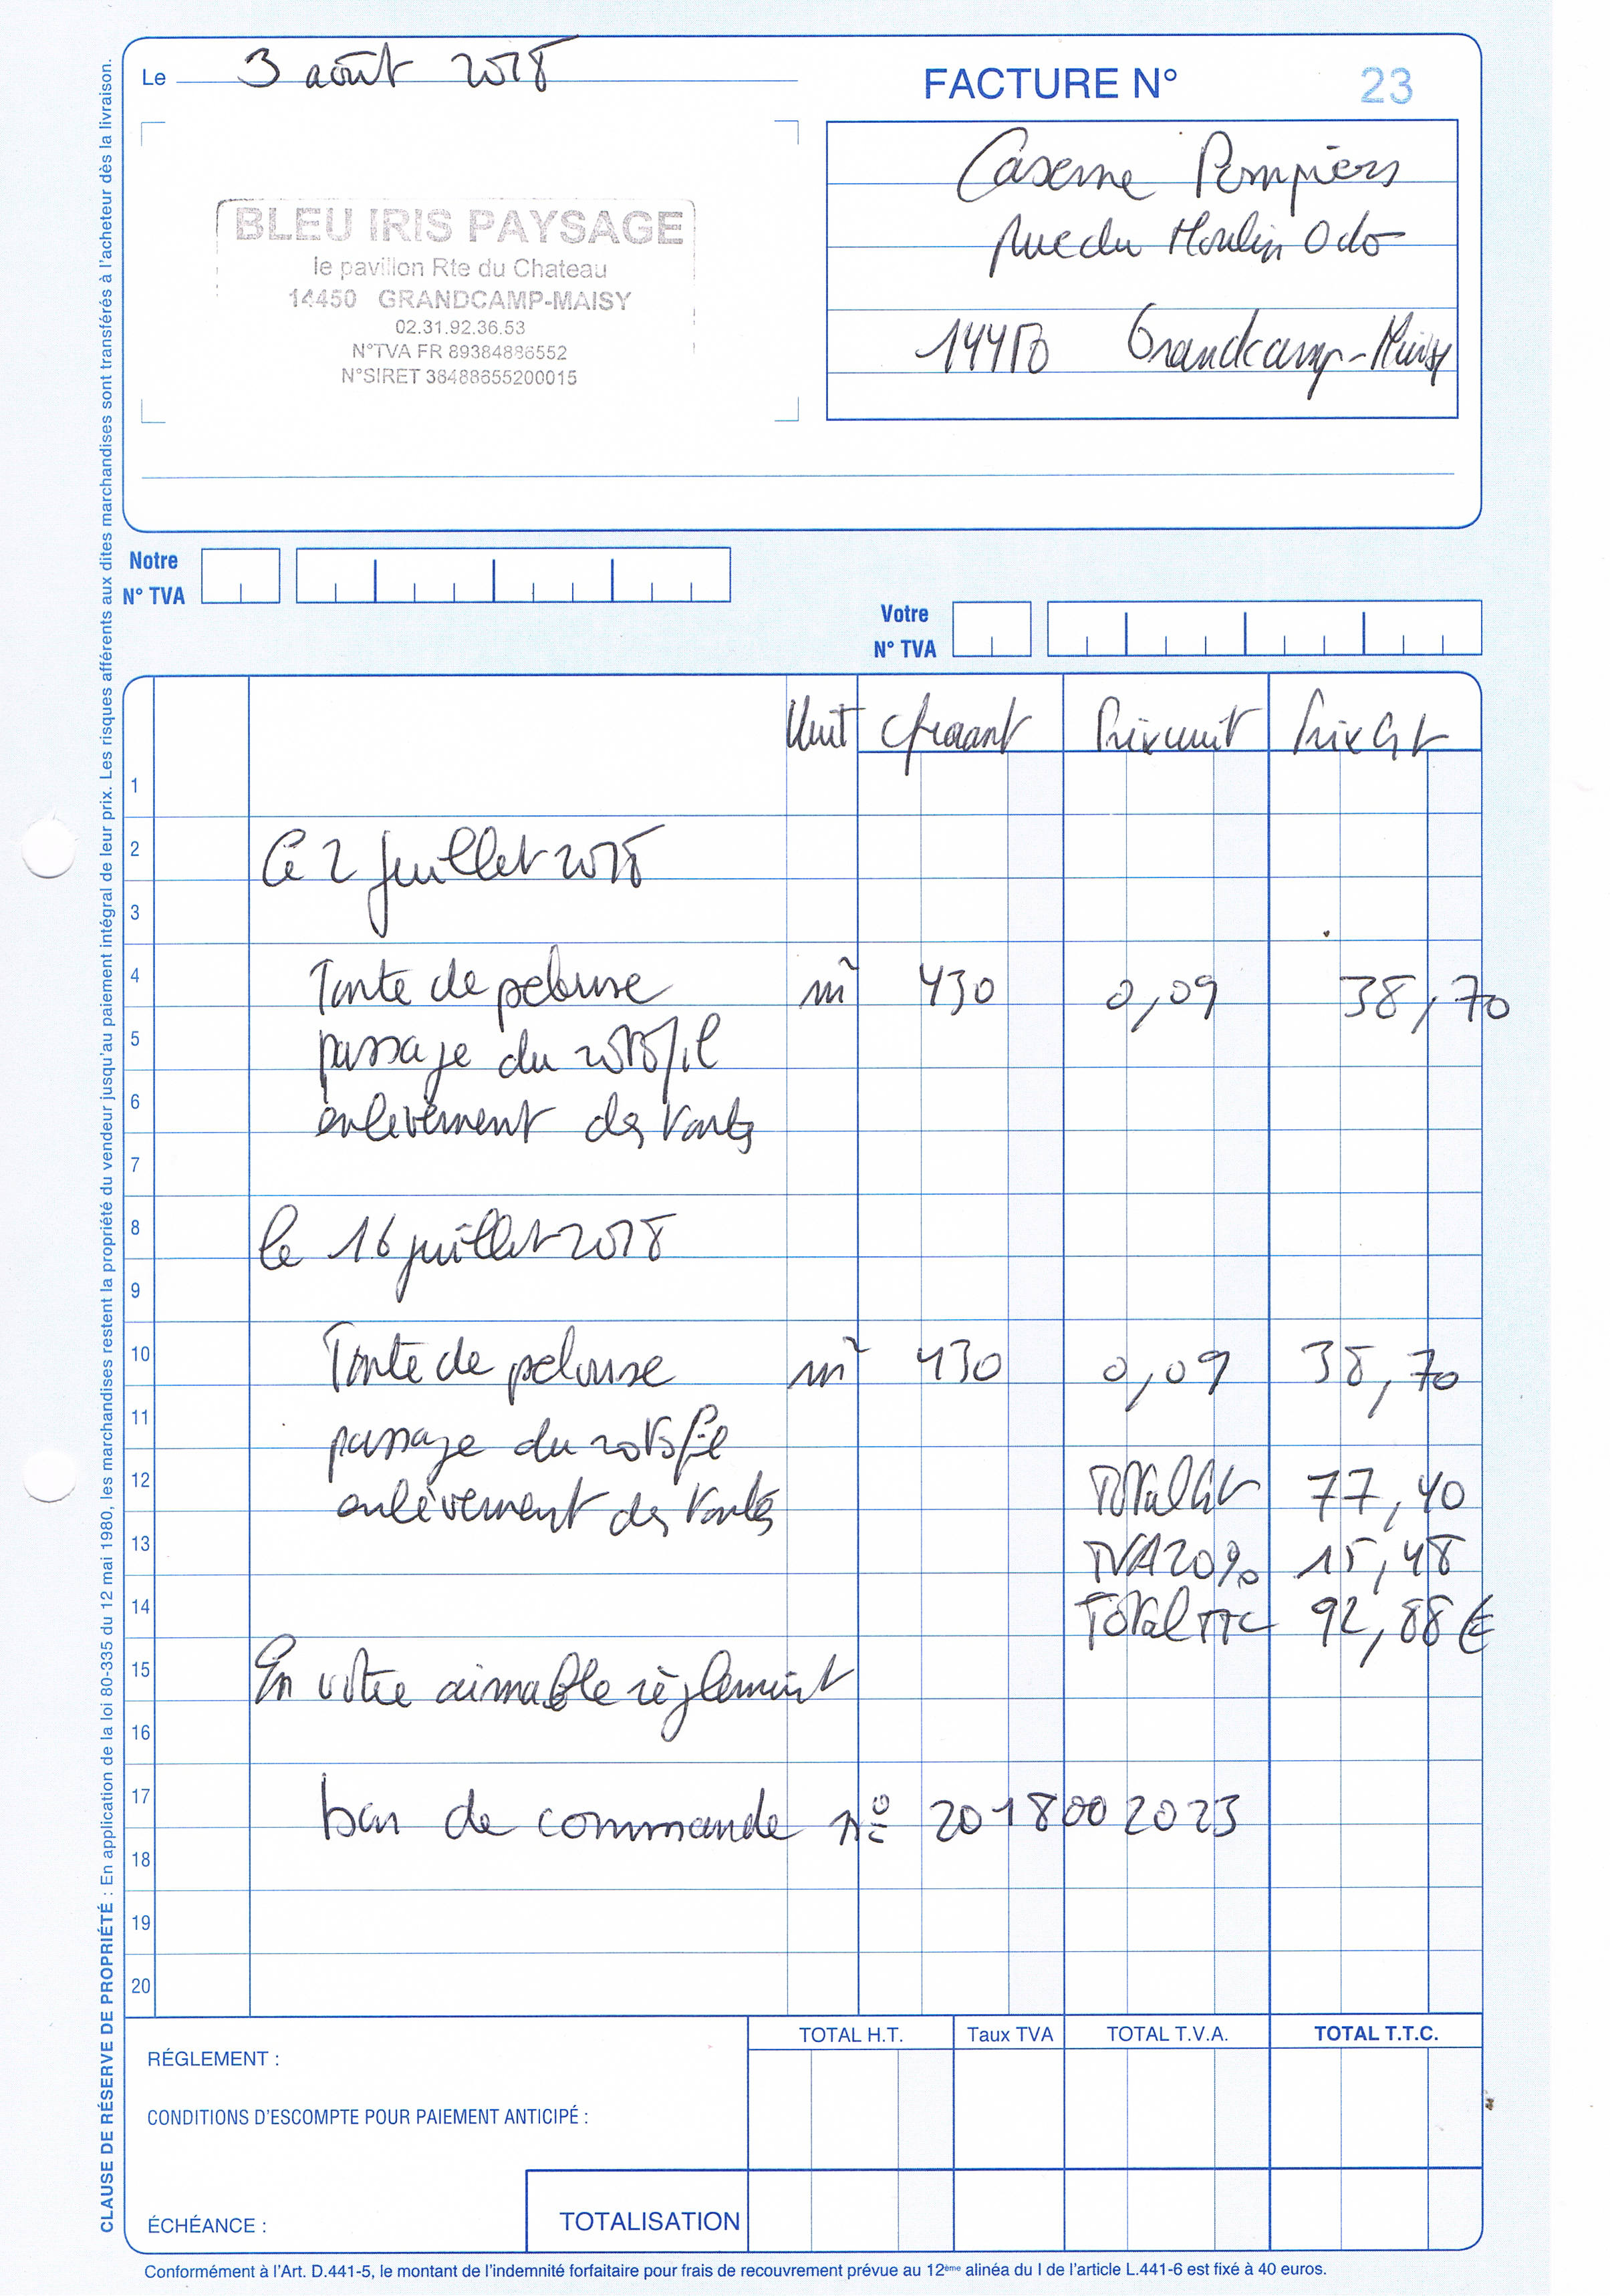 Le 3 août 2018
FACTURE N° 23
BLEU IRIS PAYSAGE
le pavillon Rte du Chateau
14450 GRANDCAMP-MAISY
02.31.92.36.53
N°TVA FR 89384886552
N°SIRET 38488655200015
Caserne Pompiers
Rue du Moulin Odo
14450 Grandcamp-Maisy
Notre
N° TVA
Votre
N° TVA
Unit quant Prix unit Prix Ht
1
2 le 2 Juillet 2018
3
4 Tonte de pelouse m² 430 0,09 38,70
5 passage du rotofil
6 enlèvement des tontes
7
8 le 16 juillet 2018
9
10 Tonte de pelouse m² 430 0,09 38,70
11 passage du rotofil
12 enlèvement des tontes Total Ht 77,40
13 TVA 20% 15,48
14 Total TTC 92,88 €
15 En votre aimable règlement
16
17 bon de commande n° 2018002023
18
19
20
TOTAL H.T. Taux TVA TOTAL T.V.A. TOTAL T.T.C.
RÉGLEMENT :
CONDITIONS D'ESCOMPTE POUR PAIEMENT ANTICIPÉ :
ÉCHÉANCE :
TOTALISATION
Conformément à l'Art. D.441-5, le montant de l'indemnité forfaitaire pour frais de recouvrement prévue au 12ème alinéa du I de l'article L.441-6 est fixé à 40 euros.
CLAUSE DE RÉSERVE DE PROPRIÉTÉ : En application de la loi 80-335 du 12 mai 1980, les marchandises restent la propriété du vendeur jusqu'au paiement intégral de leur prix. Les risques afférents aux dites marchandises sont transférés à l'acheteur dès la livraison.